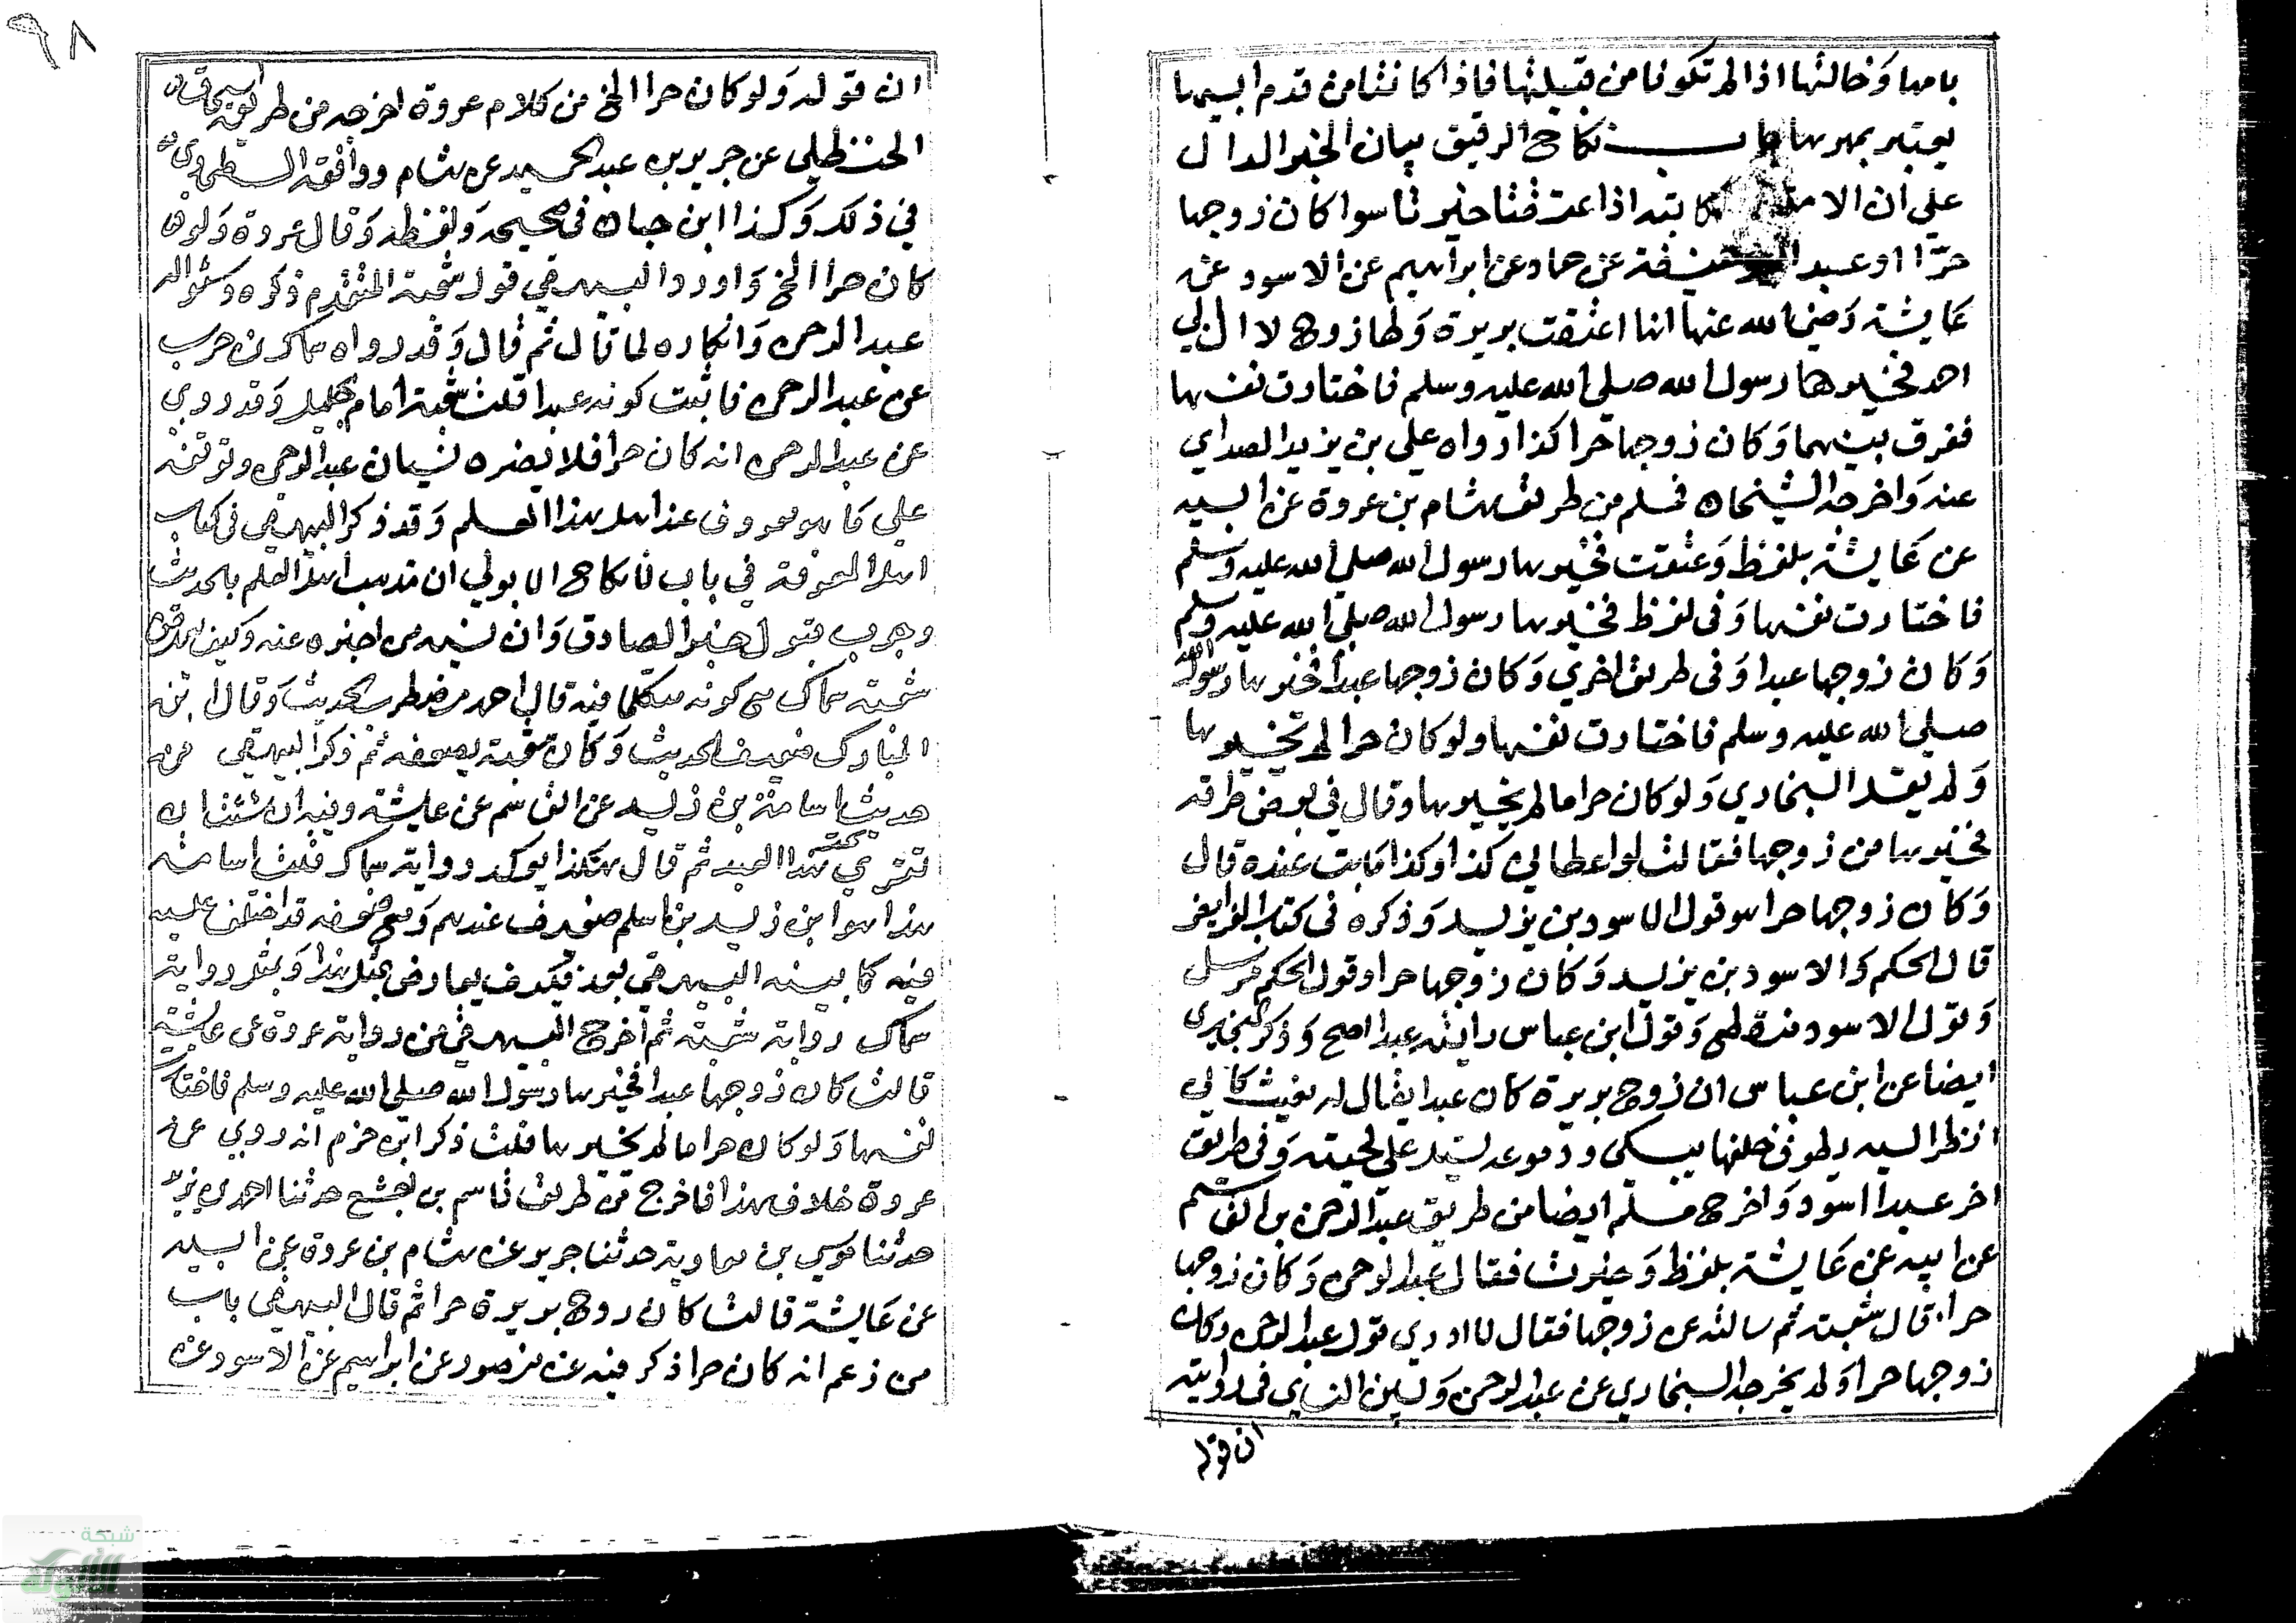 بامها وخالتها اذا لم تكونا من قبيلتها فاذا كانتا من قدم ابيها
يعتبر بمهرها باب نكاح الرقيق بيان الخبر الدال
علي ان الامة كاتبه اذا عتقتا خيرتا سوا كان زوجها
حرا او عبدا ابو حنيفة عن حماد عن ابراهيم عن الاسود عن
عايشة رضي الله عنها انها اعتقت بريرة ولها زوج لال ابي
احمد فخيرها رسول الله صلي الله عليه وسلم فاختارت نفسها
ففرق بينهما وكان زوجها حرا كذا رواه علي بن يزيد الصداي
عنه واخرجه الشيخان فمسلم من طريق هشام بن عروة عن ابيه
عن عايشة بلفظ وعتقت فخيرها رسول الله صلي الله عليه وسلم
فاختارت نفسها وفي لفظ فخيرها رسول الله صلي الله عليه وسلم
وكان زوجها عبدا وفي طريق اخري وكان زوجها عبدا فخيرها رسول الله
صلي الله عليه وسلم فاختارت نفسها ولو كان حرا لم يخيرها
ولم يقل البخاري ولو كان حرا ما لم يخيرها وقال في بعض طرقه
فخيرها من زوجها فقالت لو اعطاني كذا وكذا ما بت عنده قال
وكان زوجها حرا هو قول الاسود بن يزيد وذكره في كتاب الفرايض
قال الحكم والاسود بن يزيد وكان زوجها حرا وقول الحكم مرسل
وقول الاسود منقطع وقول ابن عباس رايته عبدا اصح وذكر البخاري
ايضا عن ابن عباس ان زوج بريرة كان عبدا يقال له مغيث كاني
انظر اليه يطوف خلفها يبكي ودموعه تسيل علي لحيته وفي طريق
اخر عبدا اسود واخرج مسلم ايضا من طريق عبد الرحمن بن القسم
عن ابيه عن عايشة بلفظ وخيرت فقال عبد الرحمن وكان زوجها
حرا. قال شعبة ثم سالته عن زوجها فقال لا ادري قول عبد الرحمن وكان
زوجها حرا ولم يخرجه البخاري عن عبد الرحمن وبين النساي في روايته
ان قوله
٩٨
ان قوله ولو كان حرا الخ من كلام عروة اخرجه من طريق اسحاق
الحنظلي عن جرير بن عبد الحميد عن هشام ووافقه الطحاوي
في ذلك وكذا ابن حبان في صحيحه ولفظه وقال عروة ولو
كان حرا الخ واورد البيهقي قول شعبة المتقدم ذكره وسواله
عبد الرحمن وانكاره لما قال ثم قال وقد رواه سماك بن حرب
عن عبد الرحمن فاثبت كونه عبدا قلت شعبة امام جليل وقد روي
عن عبد الرحمن انه كان حرا فلا يضره نسيان عبد الرحمن وتوقفه
علي ما هو معروف عند اهل هذا العلم وقد ذكر البيهقي في كتاب
المعرفة في باب لا نكاح الا بولي ان مذهب اهل العلم بالحديث
وجوب قبول خبر الصادق وان نسيه من اخبره عنه وكيف
شعبة سماك مع كونه متكلما فيه قال احمد مضطرب الحديث وقال ابن
المبارك ضعيف الحديث وكان شعبة يضعفه ثم ذكر البيهقي من
حديث اسامة بن زيد عن القاسم عن عايشة وفيه ان شئت ان
تقري تحت هذا العبد ثم قال هكذا يوكد رواية سماك قلت اسامة
هذا هو ابن زيد بن اسلم ضعيف عندهم ومع ضعفه قد اختلف عليه
فيه كما بينه البيهقي بعد فكيف يعارض بمثل هذا وبمثل رواية
سماك رواية شعبة ثم اخرج البيهقي من رواية عروة عن عايشة
قالت كان زوجها عبدا فخيرها رسول الله صلي الله عليه وسلم فاختارت
نفسها ولو كان حرا ما لم يخيرها قلت ذكر ابن حزم انه روي عن
عروة خلاف هذا فاخرج من طريق قاسم بن اصبغ حدثنا احمد بن يزيد
حدثنا موسي بن معاوية حدثنا جرير عن هشام بن عروة عن ابيه
عن عايشة قالت كان زوج بريرة حرا ثم قال البيهقي باب
من زعم انه كان حرا ذكر فيه عن منصور عن ابراهيم عن الاسود عن
شبكة
الألوكة